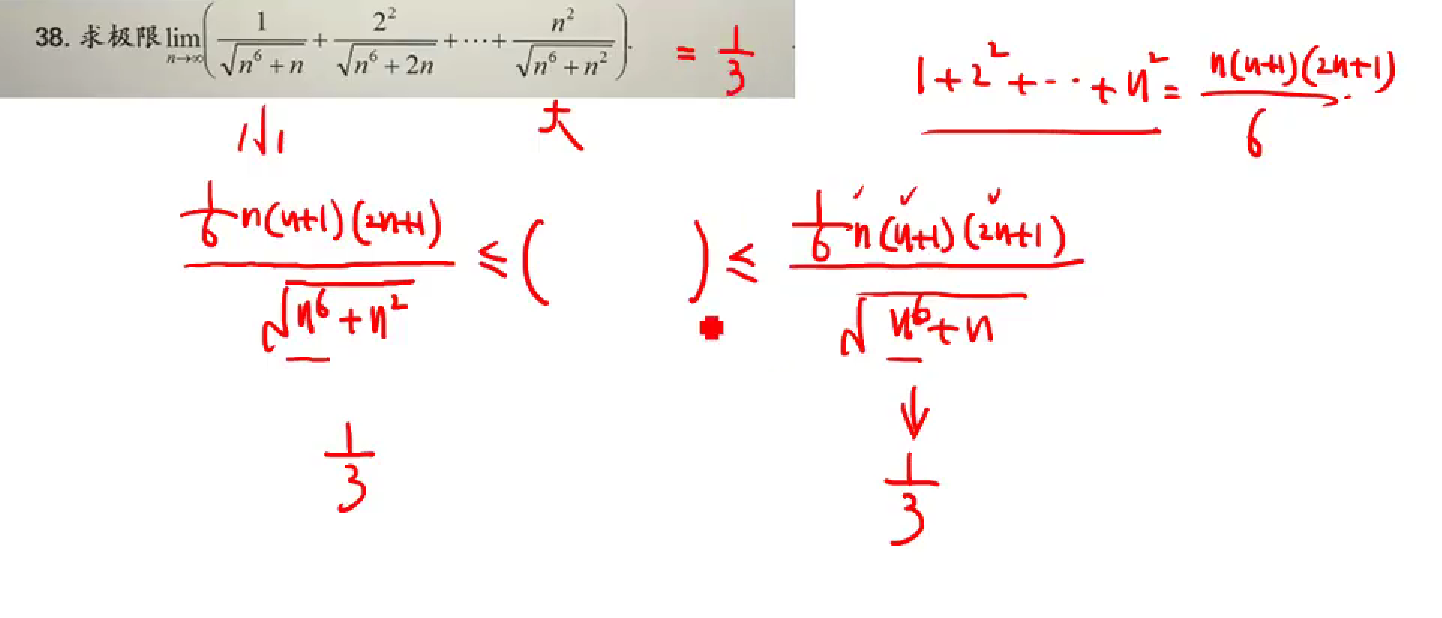 38. 求极限 lim_{n→∞} ( 1/√(n⁶+n) + 2²/√(n⁶+2n) + ⋯ + n²/√(n⁶+n²) ). = 1/3
1+2²+⋯+n² = n(n+1)(2n+1)/6
小 大
(1/6 n(n+1)(2n+1))/√(n⁶+n²) ≤ ( ) ≤ (1/6 n(n+1)(2n+1))/√(n⁶+n)
↓
1/3 1/3